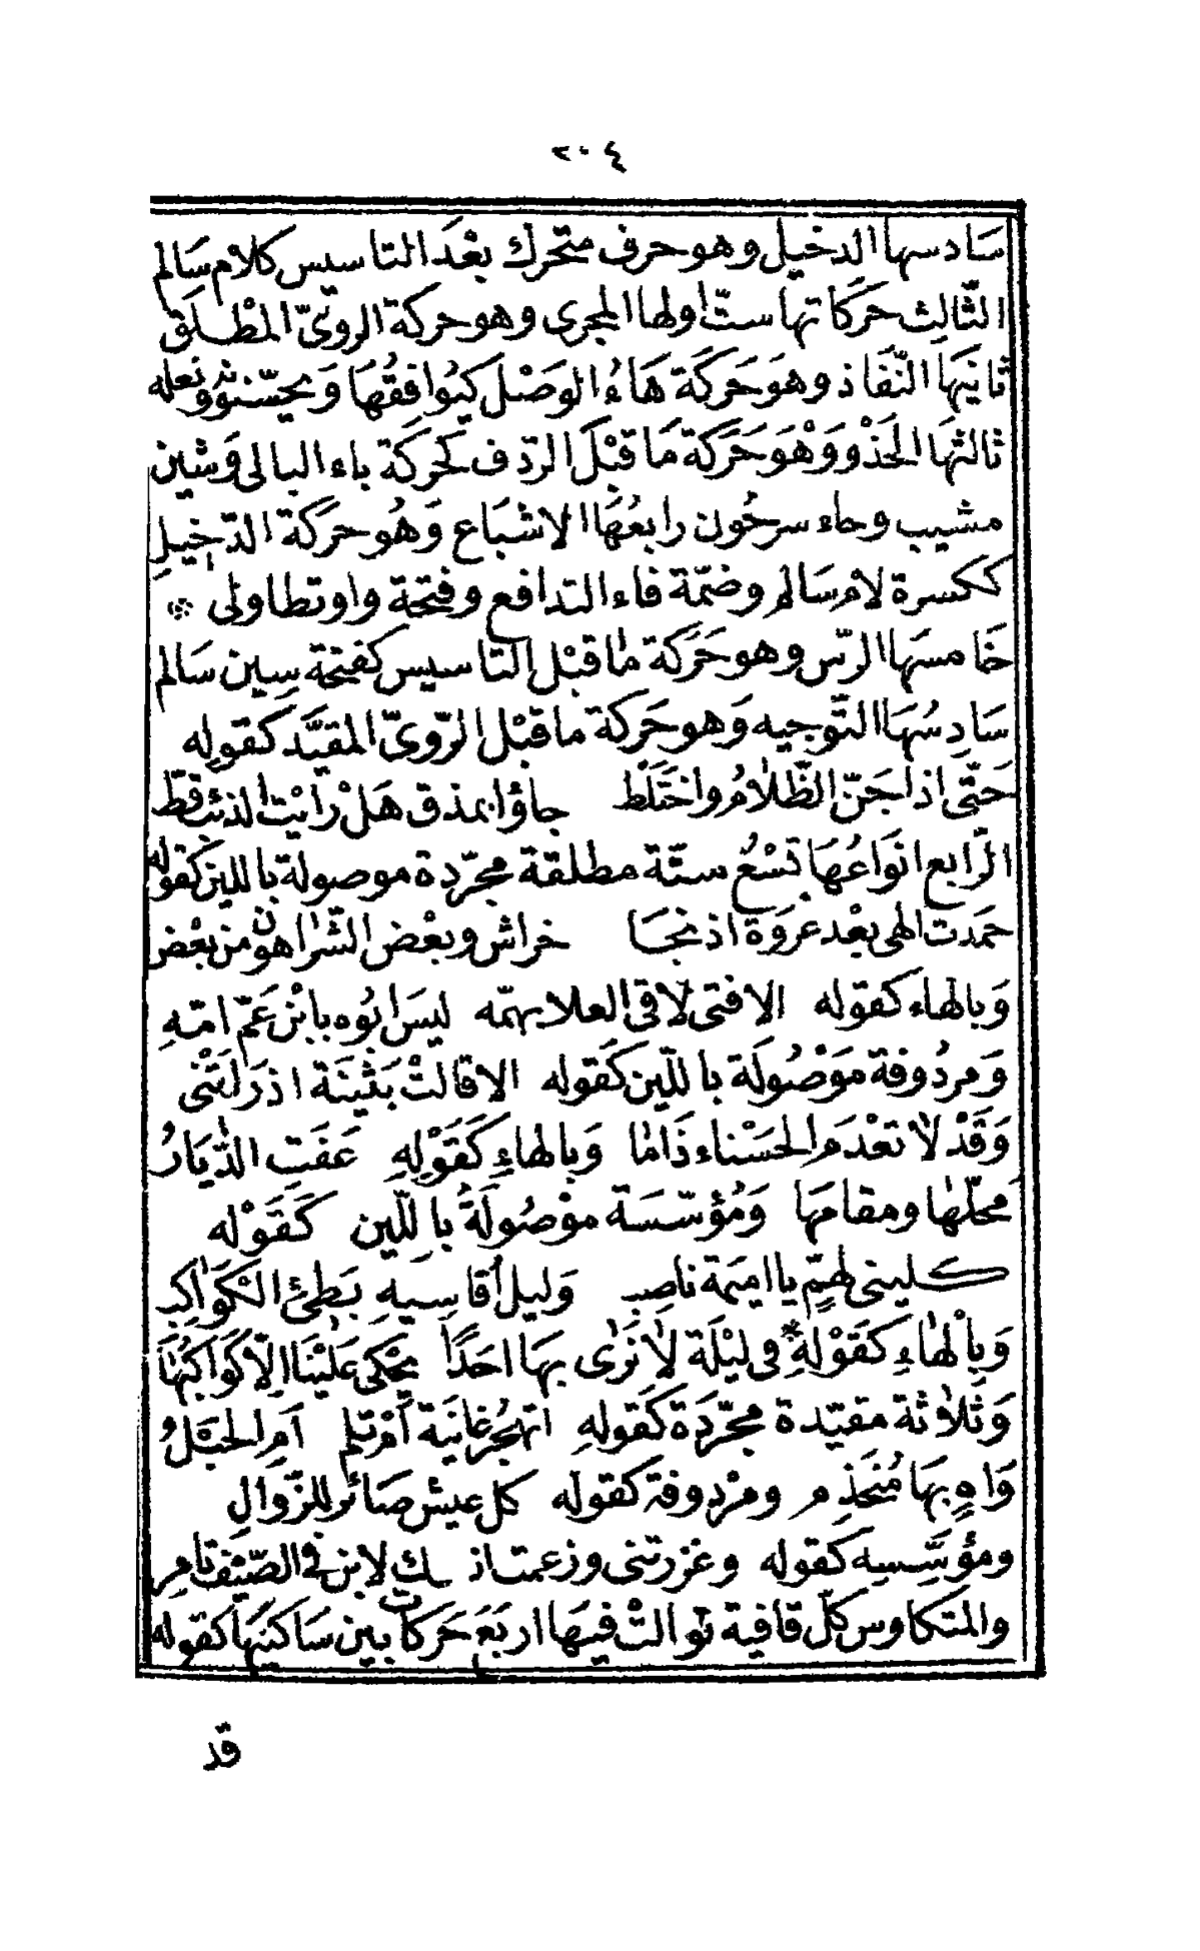 ٢٠٤
سَادسها الدخيل وهو حرف متحرك بعْدَ التاسيس كلام سَالم
الثّالِث حَرَكاتها ستّ اولها المجرى وهو حركة الروىّ المطْلَق
ثانيَها النّفَاذ وهوَ حَرَكَة هَاءُ الوَصْل كيُوافِقُهَا وَيحسّنونه ونعله
ثالثهَا الحَذْو وَهْوَ حَرَكَة مَا قبْلَ الردف كحَركَة باء البالى وَشين
مشيب وحاء سرحُون رابعُهَا الاشبَاع وَهُو حرَكَة الدّخيلِ
ككسرة لام سَالم وضمّة فاء التدافع وفتحة واو تطاولى
خَامسَها الرّس وهو حَرَكة مٰا قبْل التاسيس كفتحة سِين سَالم
سَادِسُهَا التّوجيه وَهو حَركة ما قبْل الرّوىّ المقيَّد كقوله
حَتّى اذا جَنّ الظّلاٰمُ واختَلَط جاؤا بمذق هَلْ رايْت الذئب قطّ
الرّابع انوَاعُهَا تسْعُ ستّة مطلقة مجرّدة موصولة باللين كقوله
حمدت الهى بعْد عروَة اذ نجَا خراش وبعْض الشّر اهون من بعْض
وَبالهاء كقوله الا فتى لاقى العلا بهمّه ليسَ ابُوه بابْن عَمّ امّهِ
وَمردُوفة مَوْصُولَة باللّين كقوله الا قالتْ بَثيْنَة اذ رَاتْنى
وَقَدْ لاٰ تعْدَم الحَسْناء ذَامٰا وَبالهاءِ كَقَوْلِهِ عَفَتِ الدّيَارُ
محلّهٰا ومقامَها وَمُؤسّسَة موْصُولَةُ باللّين كَقَوْله
كلينى لهمٍّ يا اميَمة ناصِب وَليل أقاسِيهِ بَطِئ الكَوَاكِب
وَبِالْهٰاءِ كَقَوْلهِ فى ليْلَة لاٰ نَرٰى بهَا احَدًا يحْكى عَليْنَا اِلاّ كَوَاكبُهَا
وَثَلاٰثة مقيّدة مجّرَدَة كَقَوله اتهجُر غانيَة أمْ تلم اَم الحَبْلُ
وَاهٍ بهَا مُنحَذِم ومرْدوفة كقوله كل عيش صَائر للزّوال
ومؤسَّسِه كقوله وغررتنى وزعمت انك لابن فى الصّيْف تامِر
والمتكاوس كلّ قافية توالتْ فيهَا اربَعَ حَركات بين سَاكنَها كقوله
قد